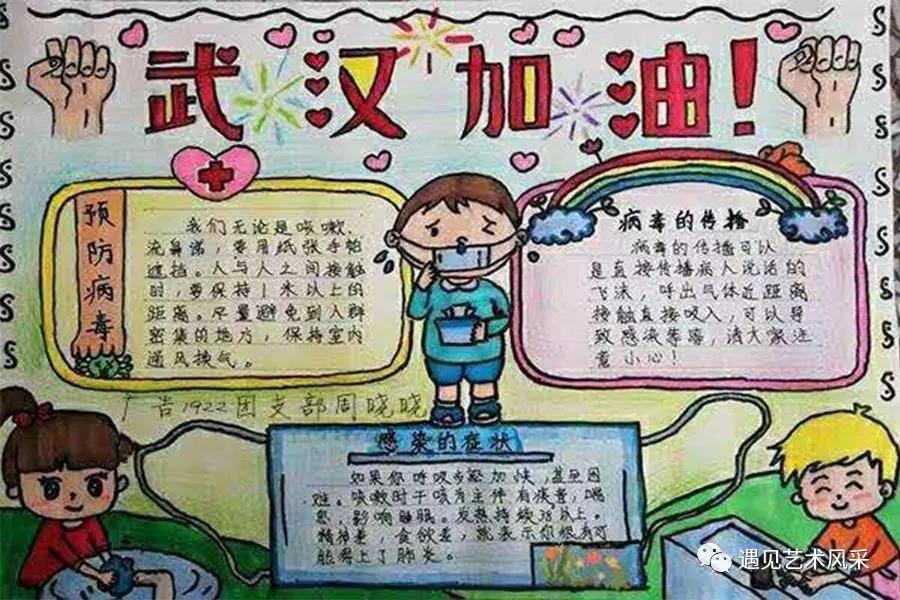 武汉加油！
预防病毒
我们无论是咳嗽、
流鼻涕，要用纸张手帕
遮挡。人与人之间接触
时，要保持1米以上的
距离。尽量避免到人群
密集的地方，保持室内
通风换气。
病毒的传播
病毒的传播可以
是直接传播病人说话的
飞沫，呼出气体近距离
接触直接吸入，可以导
致感染等等，请大家注
意小心！
广告1922团支部周晓晓
感染的症状
如果你呼吸加快，甚至困
难。咳嗽时干咳为主伴有痰音，喘
息，影响睡眠。发热持续38以上。
精神差，食欲差，就表示你很有可
能得上了肺炎。
遇见艺术风采